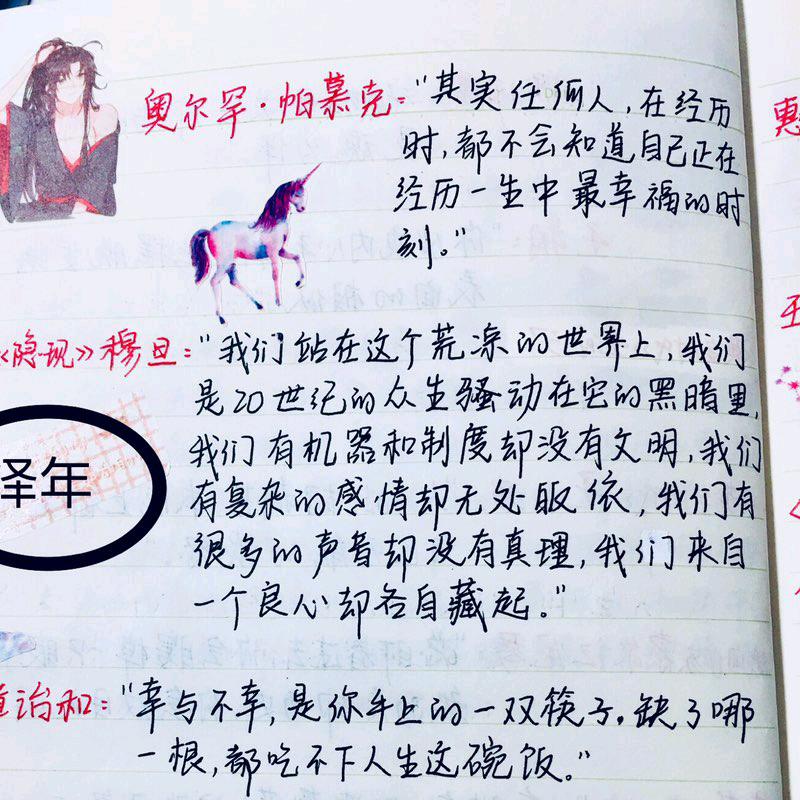 奥尔罕·帕慕克:"其实任何人,在经历
时,都不会知道自己正在
经历一生中最幸福的时
刻。"
《隐现》穆旦:"我们站在这个荒凉的世界上,我们
是20世纪的众生骚动在它的黑暗里,
我们有机器和制度却没有文明,我们
有复杂的感情却无处皈依,我们有
很多的声音却没有真理,我们来自
一个良心却各自藏起。"
泽年
治和:"幸与不幸,是你手上的一双筷子。缺了哪
一根,都吃不下人生这碗饭。"
惠
王